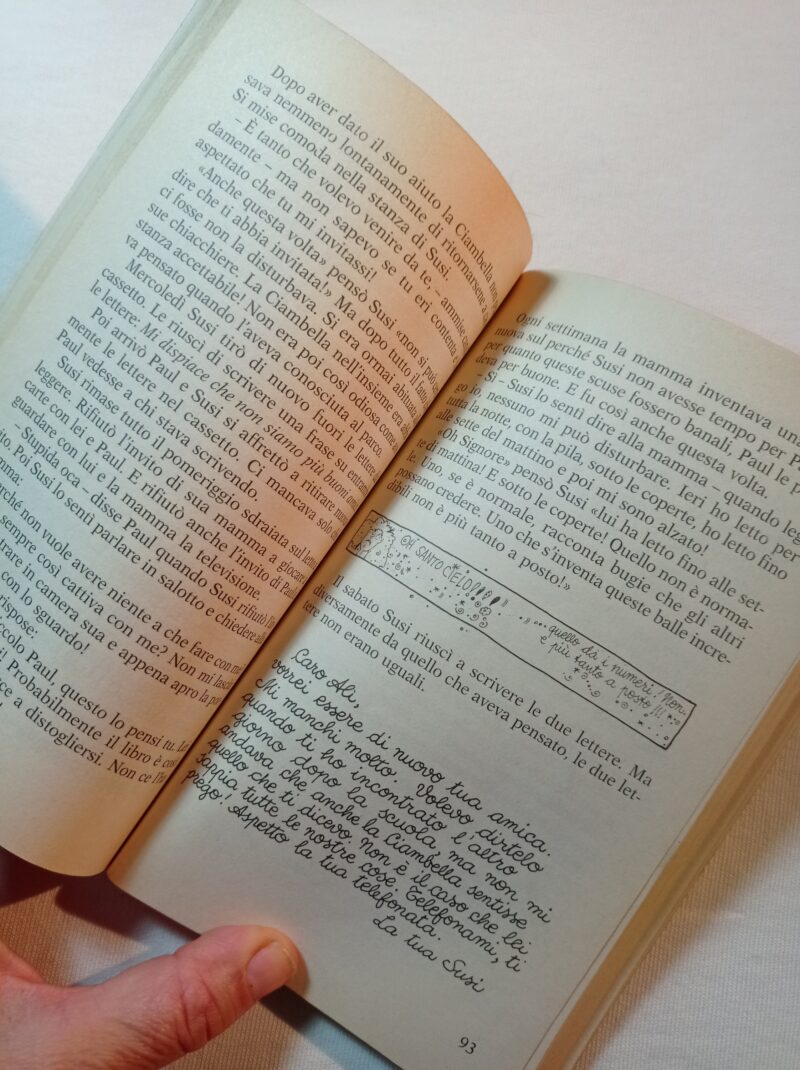 Dopo aver dato il suo aiuto la Ciambella non
sava nemmeno lontanamente di ritornarsene a
Si mise comoda nella stanza di Susi.
– È tanto che volevo venire da te, – ammise
damente – ma non sapevo se tu eri contenta
aspettato che tu mi invitassi!
«Anche questa volta» pensò Susi «non si può
dire che ti abbia invitata!» Ma dopo tutto il fatto
ci fosse non la disturbava. Si era ormai abituata
sue chiacchiere. La Ciambella nell'insieme era
stanza accettabile! Non era poi così odiosa come
va pensato quando l'aveva conosciuta al parco.
Mercoledì Susi tirò di nuovo fuori le lettere
cassetto. Le riuscì di scrivere una frase su
le lettere: Mi dispiace che non siamo più buoni
Poi arrivò Paul e Susi si affrettò a ritirare
mente le lettere nel cassetto. Ci mancava solo
Paul vedesse a chi stava scrivendo.
Susi rimase tutto il pomeriggio sdraiata sul
leggere. Rifiutò l'invito di sua mamma a giocare
carte con lei e Paul. E rifiutò anche l'invito di
guardare con lui e la mamma la televisione.
– Stupida oca – disse Paul quando Susi rifiutò
ito. Poi Susi lo sentì parlare in salotto e chiedere
mma:
erché non vuole avere niente a che fare con
sempre così cattiva con me? Non mi
trare in camera sua e appena apro la
con lo sguardo!
rispose:
ccolo Paul, questo lo pensi tu.
Probabilmente il libro è
ce a distogliersi. Non ce
Ogni settimana la mamma inventava una
nuova sul perché Susi non avesse tempo per
per quanto queste scuse fossero banali, Paul le
deva per buone. E fu così anche questa volta.
– Sì – Susi lo sentì dire alla mamma – quando
go io, nessuno mi può disturbare. Ieri ho letto per
tutta la notte, con la pila, sotto le coperte, ho letto fino
alle sette del mattino e poi mi sono alzato!
«Oh Signore» pensò Susi «lui ha letto fino alle set-
te di mattina! E sotto le coperte! Quello non è norma-
le. Uno, se è normale, racconta bugie che gli altri
possano credere. Uno che s'inventa queste balle incre-
dibili non è più tanto a posto!»
OH SANTO CIELO!!!!!
...quello dà i numeri! Non
è più tanto a posto!!!
Il sabato Susi riuscì a scrivere le due lettere. Ma
diversamente da quello che aveva pensato, le due let-
tere non erano uguali.
Caro Ali,
vorrei essere di nuovo tua amica.
Mi manchi molto. Volevo dirtelo
quando ti ho incontrato l'altro
giorno dopo la scuola, ma non mi
andava che anche la Ciambella sentisse
quello che ti dicevo. Non è il caso che lei
sappia tutte le nostre cose. Telefonami, ti
prego! Aspetto la tua telefonata.
La tua Susi
93